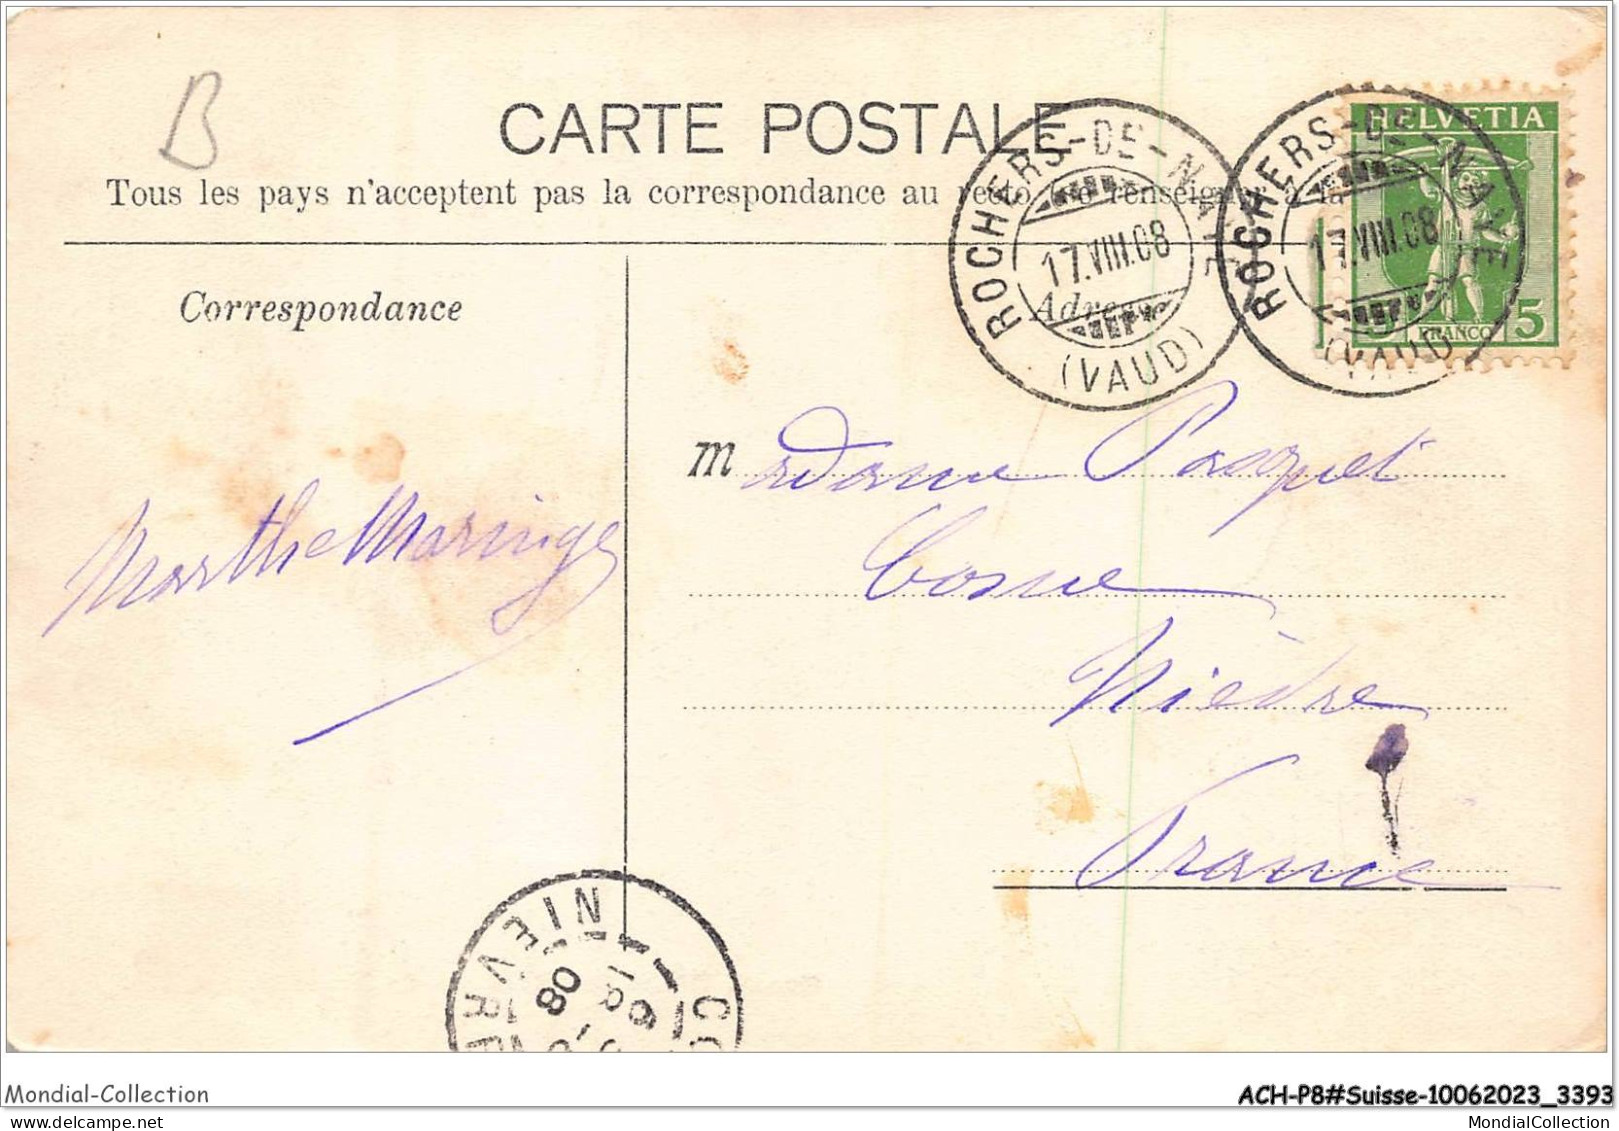 B
CARTE POSTALE
Tous les pays n'acceptent pas la correspondance au recto (se renseigner à la
HELVETIA
FRANCO 5
ROCHERS-DE-NAYE
17.VIII.08
(VAUD)
ROCHERS-DE-NAYE
17.VIII.08
(VAUD)
Correspondance
Adresse
Madame Pasquet
Cosne
Nièvre
France
Marthe Maringe
NIEVRE
08
Mondial-Collection
ACH-P8#Suisse-10062023_3393
MondialCollection